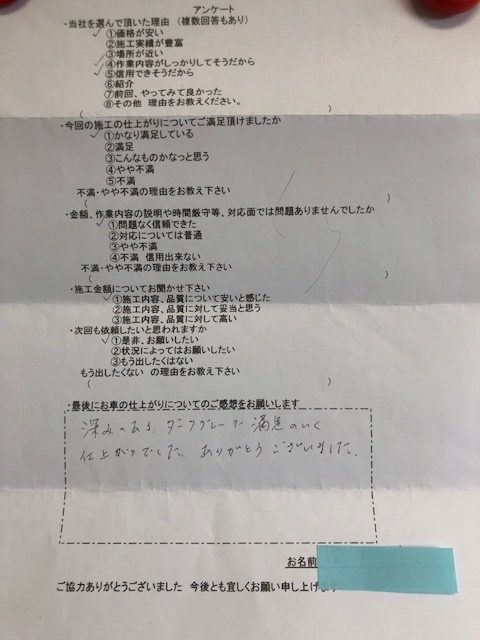 アンケート
・当社を選んで頂いた理由 (複数回答もあり)
✓①価格が安い
②施工実績が豊富
✓③場所が近い
✓④作業内容がしっかりしてそうだから
✓⑤信用できそうだから
⑥紹介
⑦前回、やってみて良かった
⑧その他 理由をお教えください。
( )
・今回の施工の仕上がりについてご満足頂けましたか
✓①かなり満足している
②満足
③こんなものかなっと思う
④やや不満
⑤不満
不満・やや不満の理由をお教え下さい
( )
・金額、作業内容の説明や時間厳守等、対応面では問題ありませんでしたか
✓①問題なく信頼できた
②対応については普通
③やや不満
④不満 信用出来ない
不満・やや不満の理由をお教え下さい
( )
・施工金額についてお聞かせ下さい
✓①施工内容、品質について安いと感じた
②施工内容、品質に対して妥当と思う
③施工内容、品質に対して高い
・次回も依頼したいと思われますか
✓①是非、お願いしたい
②状況によってはお願いしたい
③もう出したくはない
もう出したくない の理由をお教え下さい
( )
・最後にお車の仕上がりについてのご感想をお願いします
深みのある、ダークグレーで満足のいく
仕上がりでした、ありがとうございました、
お名前
ご協力ありがとうございました 今後とも宜しくお願い申し上げます